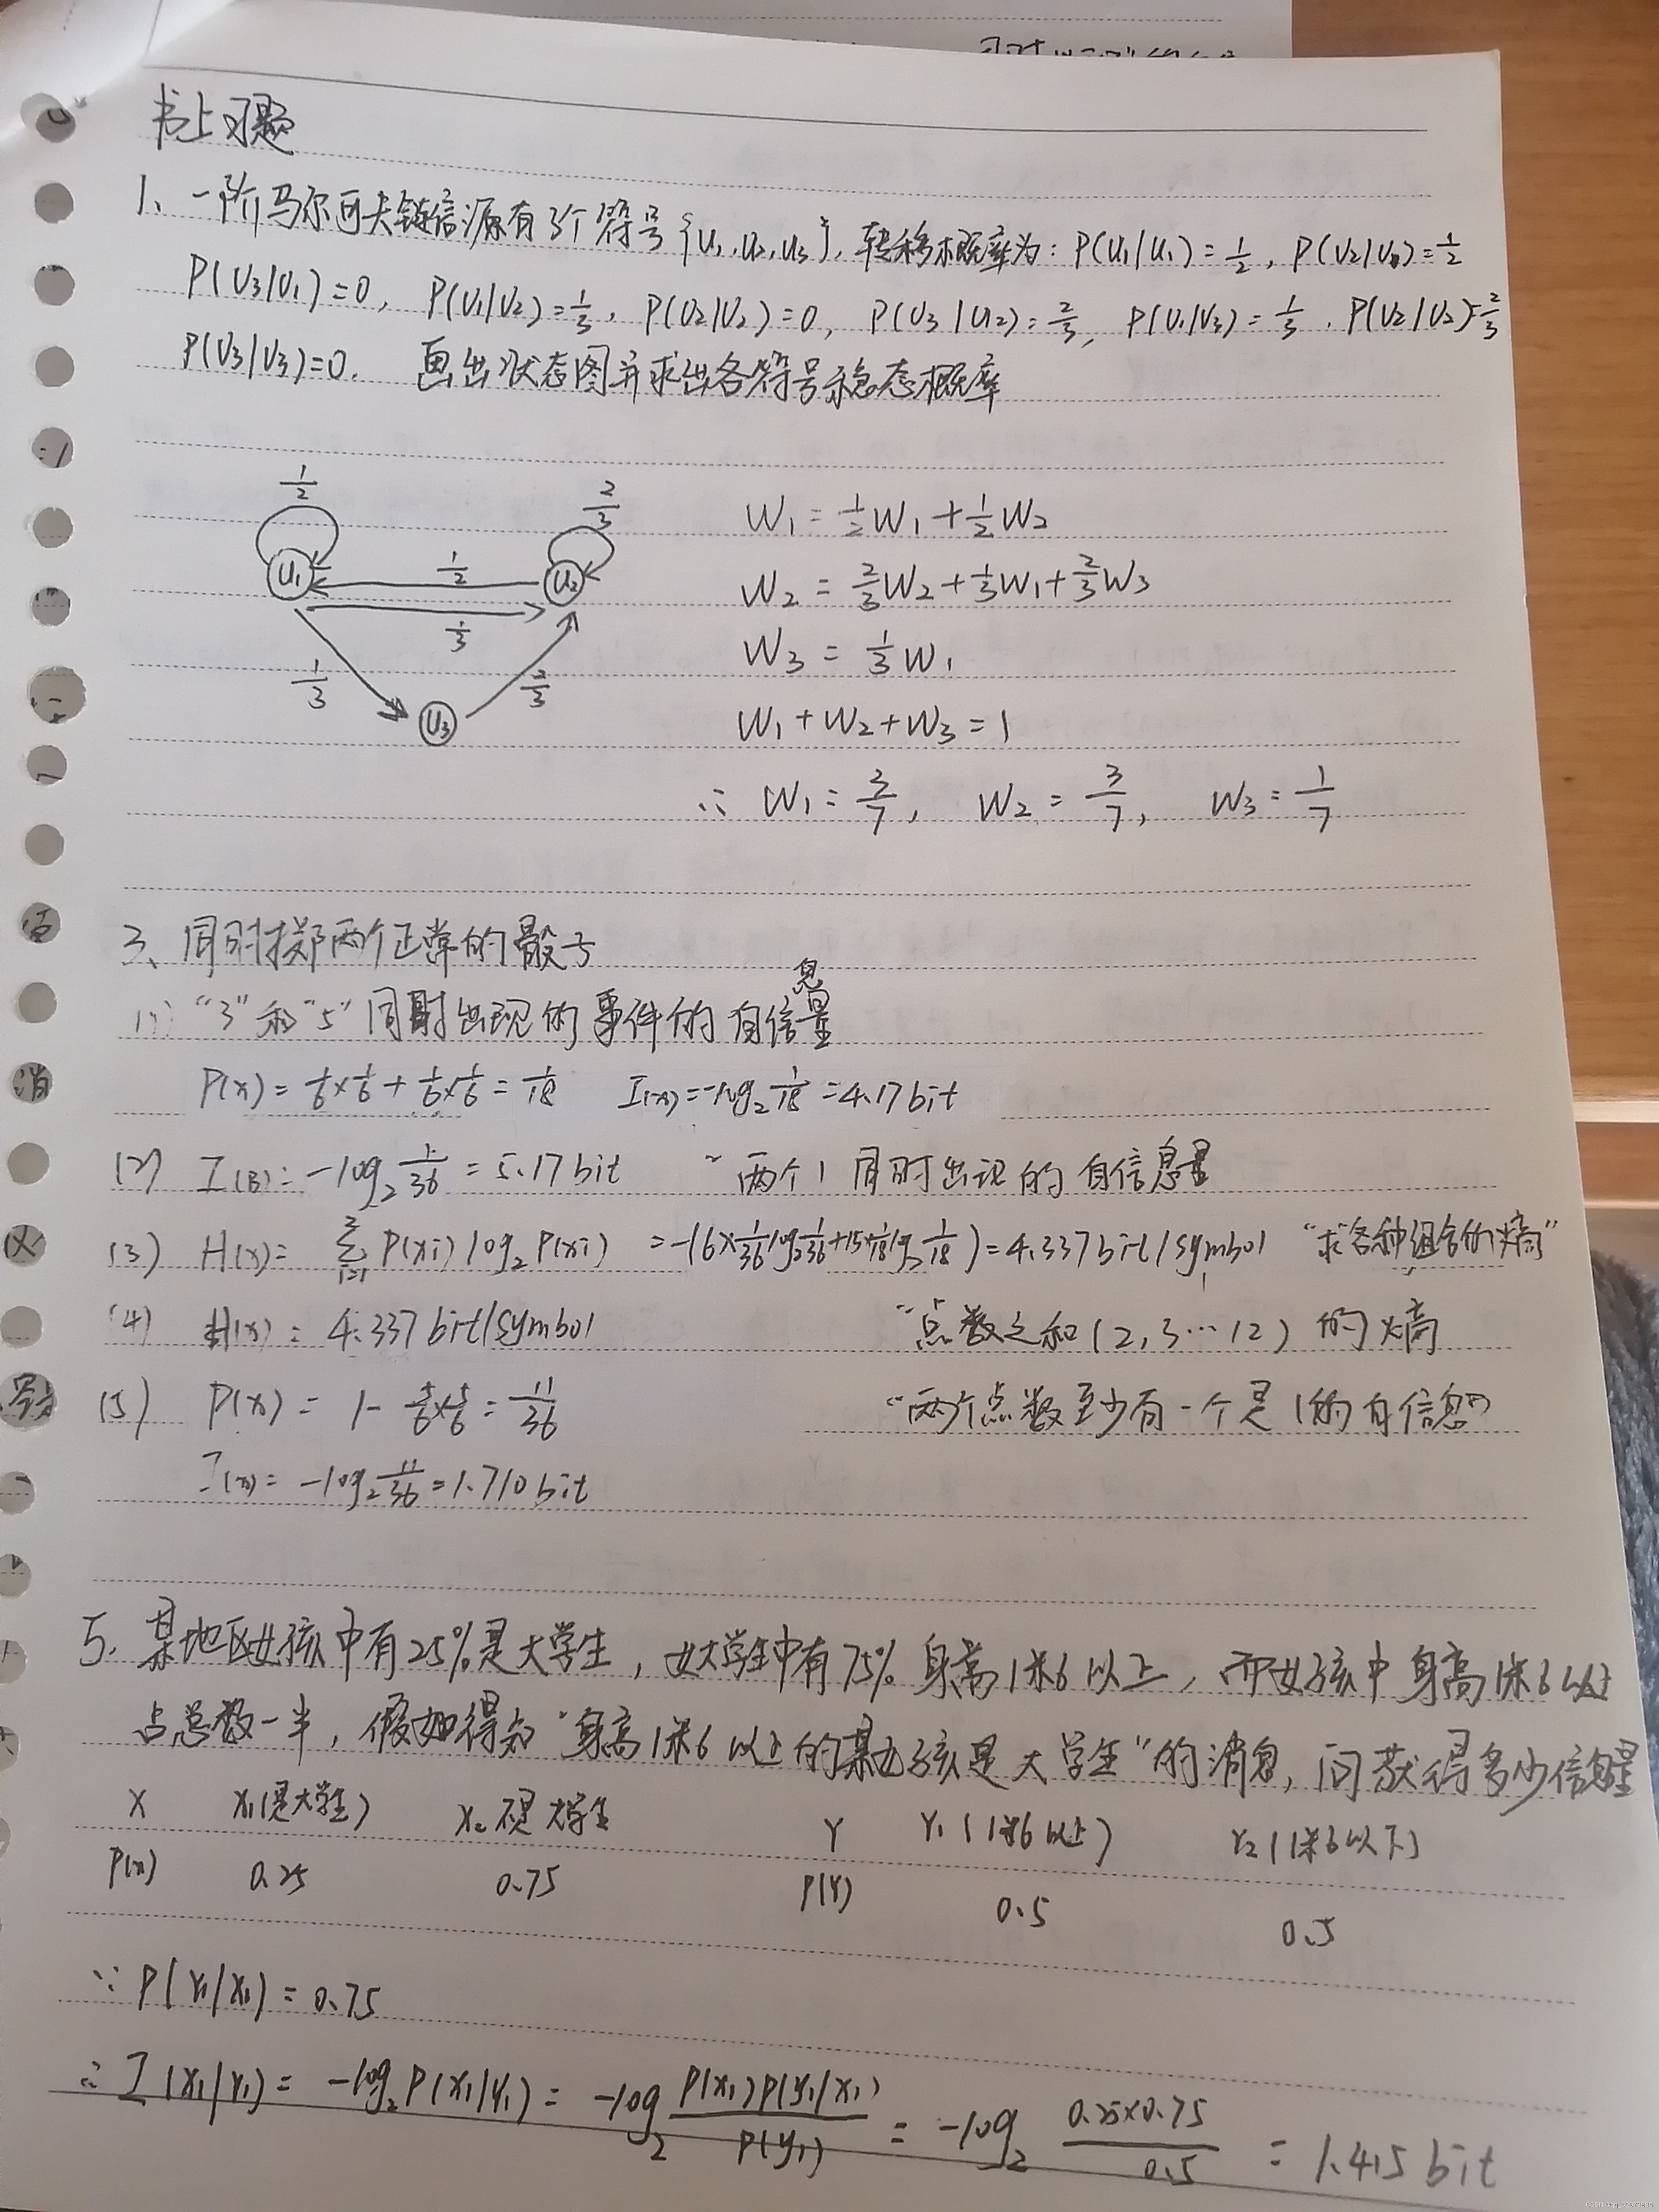 书上习题
1、一阶马尔可夫链信源有3个符号{u1,u2,u3},转移概率为:P(u1|u1)=1/2,P(U2|U1)=1/2
P(U3|U1)=0,P(U1|U2)=1/3,P(U2|U2)=0,P(U3|U2)=2/3,P(U1|U3)=1/3,P(U2|U2)=2/3
P(U3|U3)=0.画出状态图并求出各符号稳态概率
1/2 2/3
U1 1/2 U2
1/3
1/3 2/3
U3
W1=1/2W1+1/2W2
W2=2/3W2+1/3W1+2/3W3
W3=1/3W1
W1+W2+W3=1
∴W1=3/7,W2=3/7,W3=1/7
3、同时掷两个正常的骰子
(1)"3"和"5"同时出现的事件的自信息量
P(x)=1/6×1/6+1/6×1/6=1/18 I(x)=-log2 1/18=4.17bit
(2) I(B)=-log2 1/36=5.17bit "两个1同时出现的自信息量
(3) H(x)= P(xi)log2P(xi) =-(6×1/36log2 1/36+15×1/18log2 1/18)=4.337bit/symbol "求各种组合的熵"
(4) H(x)=4.337bit/symbol "点数之和(2,3…12)的熵
(5) P(x)=1-5/6×5/6=11/36 "两个点数至少有一个是1的自信息"
I(x)=-log2 11/36=1.710bit
5.某地区女孩中有25%是大学生,女大学生中有75%身高1米6以上,而女孩中身高1米6以上
占总数一半,假如得知"身高1米6以上的某女孩是大学生"的消息,问获得多少信息量
X x1(是大学生) x2不是大学生 Y Y1(1米6以上) Y2(1米6以下)
P(x) 0.25 0.75 P(Y) 0.5 0.5
∵P(Y1|X1)=0.75
∴I(X1|Y1)=-log2P(X1|Y1)=-log2 P(x1)P(y1|x1)/P(y1)=-log2 0.25×0.75/0.5=1.415bit